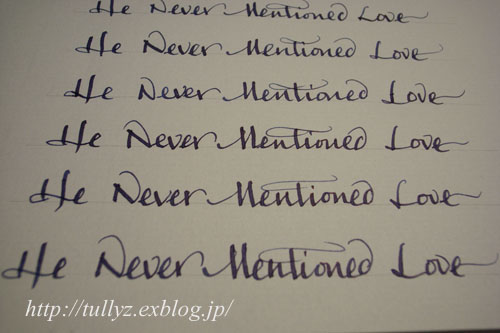 He Never Mentioned Love
He Never Mentioned Love
He Never Mentioned Love
He Never Mentioned Love
He Never Mentioned Love
He Never Mentioned Love
http://tullyz.exblog.jp/